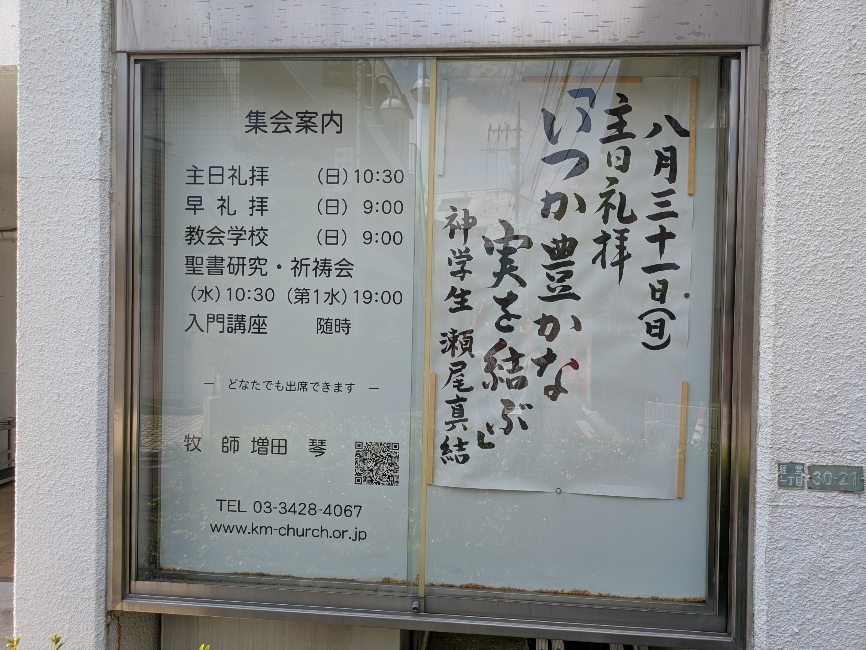 集会案内
主日礼拝 (日) 10:30
早礼拝 (日) 9:00
教会学校 (日) 9:00
聖書研究・祈祷会
(水) 10:30 (第1水) 19:00
入門講座 随時
― どなたでも出席できます ―
牧師 増田 琴
TEL 03-3428-4067
www.km-church.or.jp
八月三十一日(日)
主日礼拝
「いつか豊かな
実を結ぶ」
神学生 瀬尾真結
一丁目
30-21